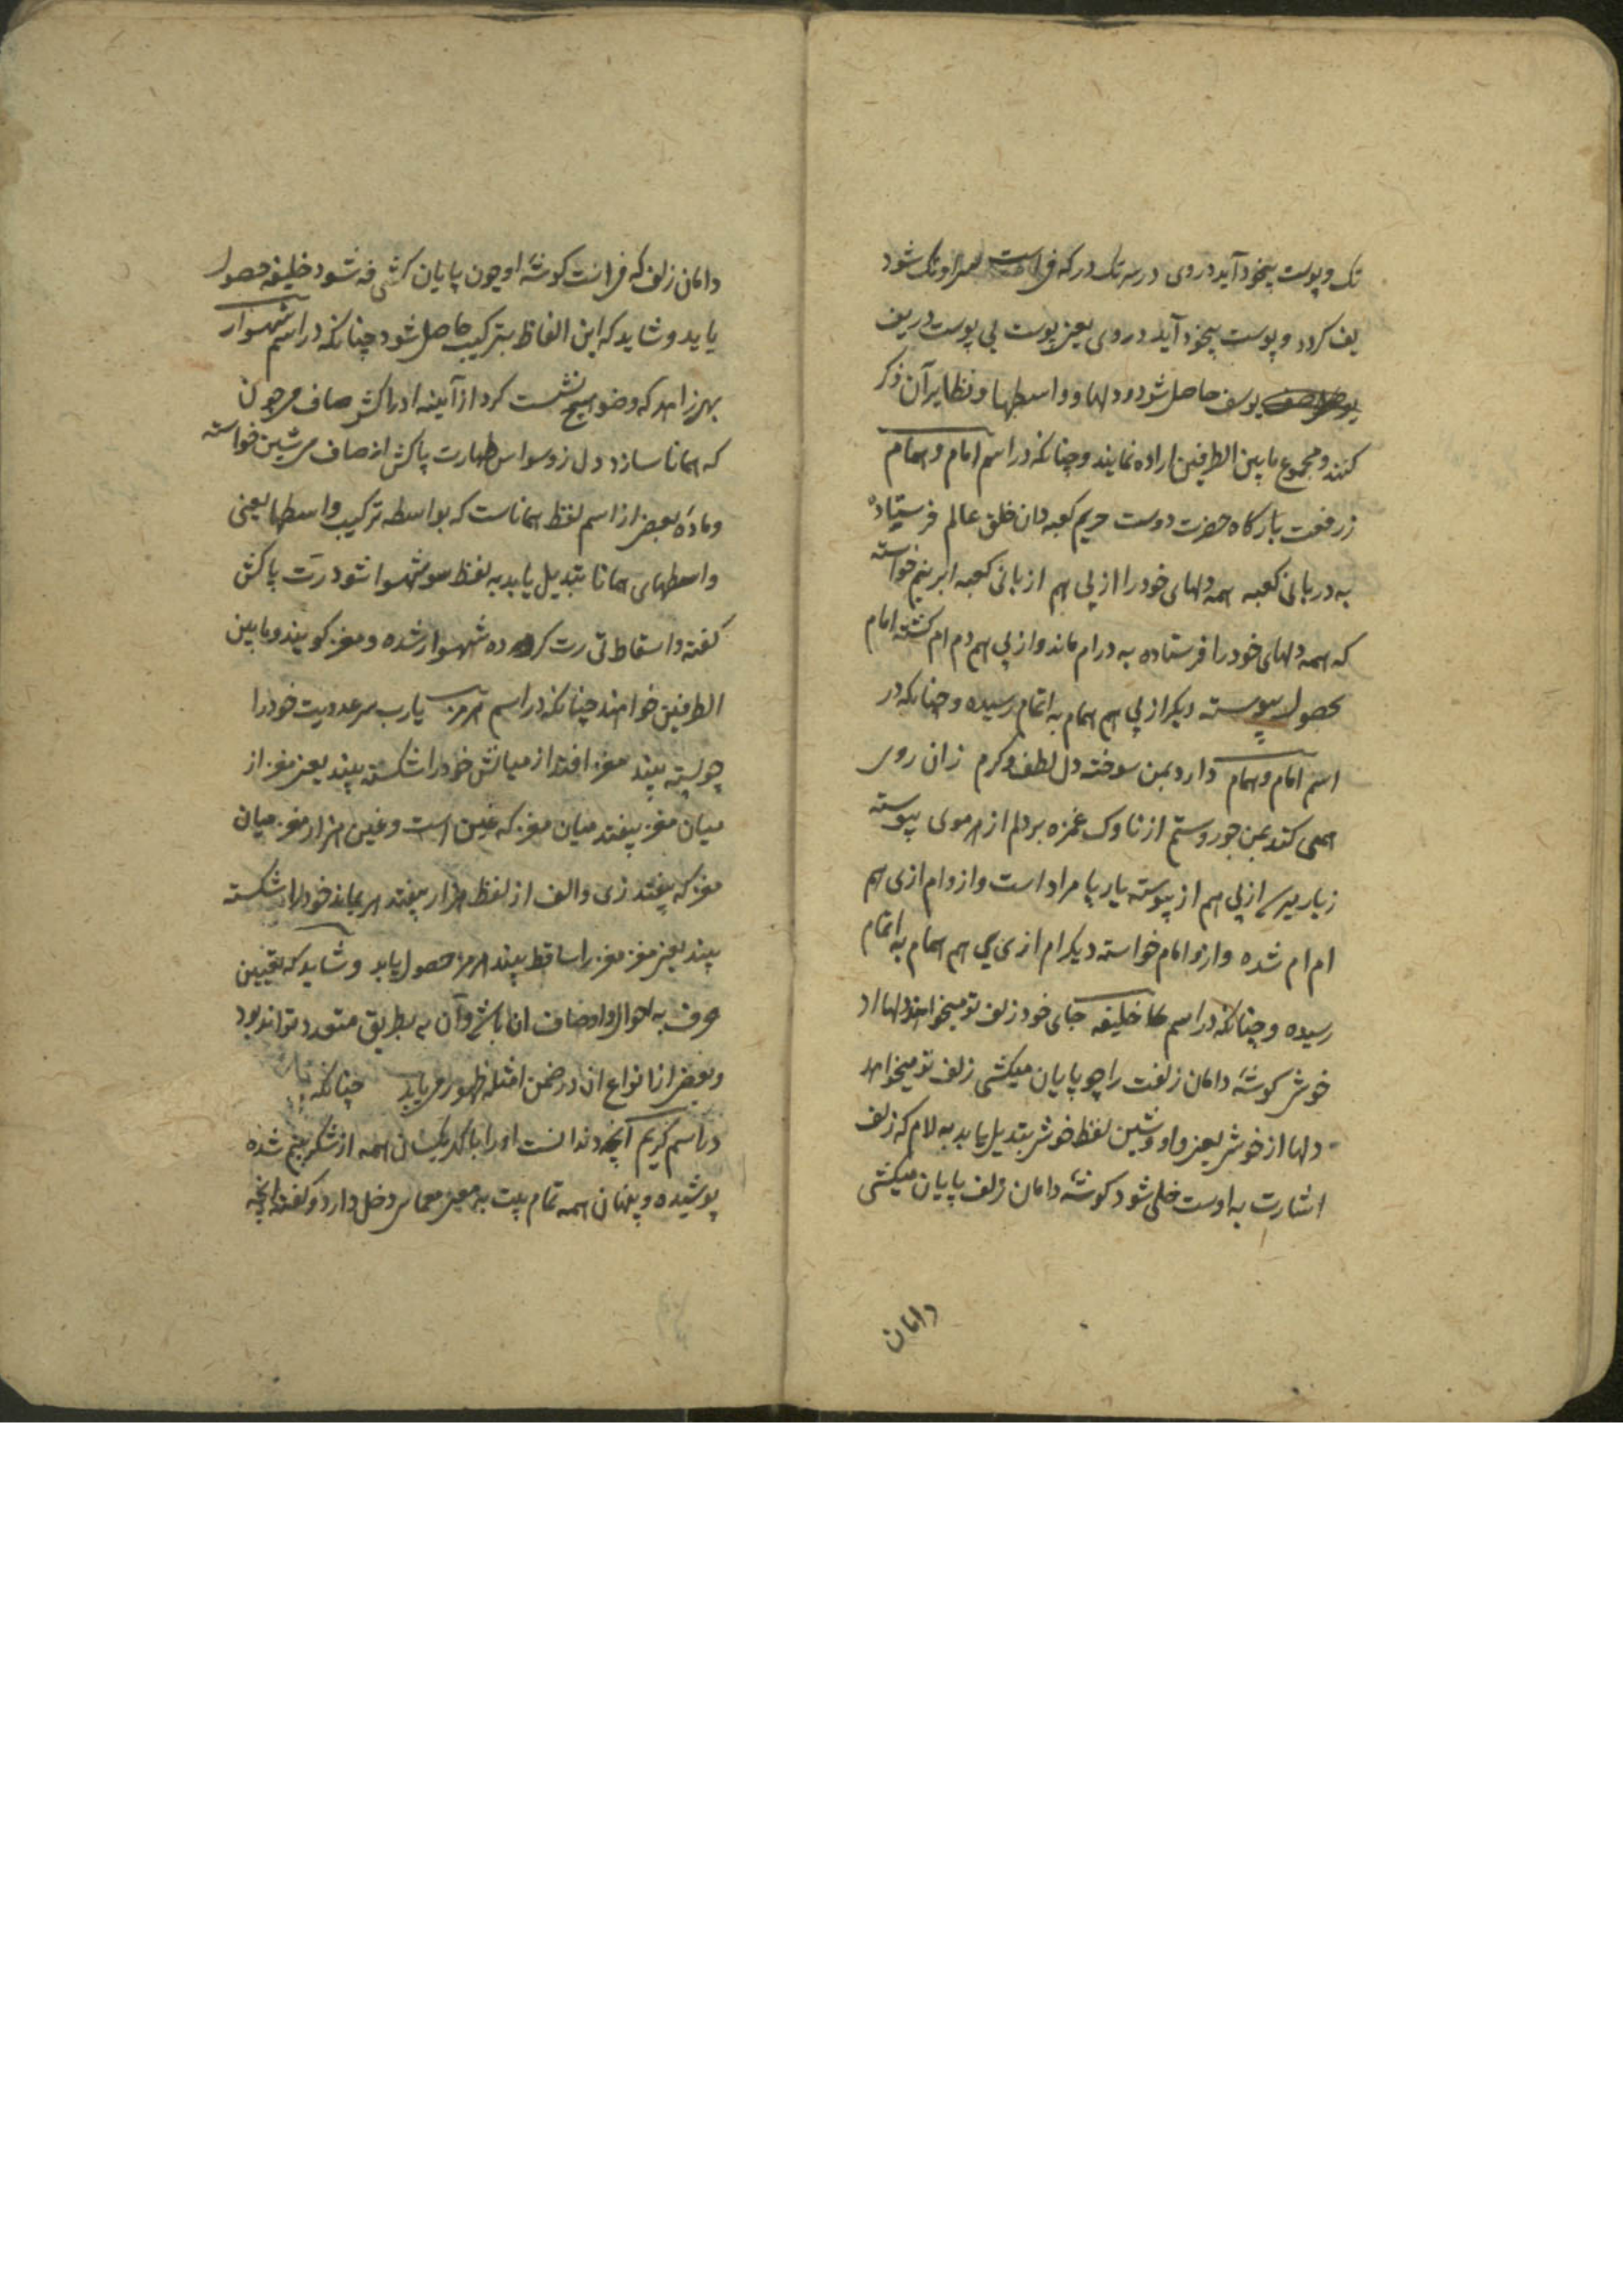 تک و پوست بیخود آید در وی در سه تک در که فی است سراو تک شود
یف کردد و پوست بیخود آید در وی یعنی پوست بی پوست در یف
یوسف حاصل شود و دلها و واسطها و نظایر آن ذکر
کنند و مجموع ما بین الطرفین اراده نمایند و چنانکه در اسم امام و همام
ز رفعت بارکاه حضرت دوست حریم کعبه دان خلق عالم فرستاده
به دربانی کعبه همه دلهای خود را از پی هم از بانی کعبه ابرهیم خواسته
که همه دلهای خود را فرستاده به در ام ماند و از پی هم دم ام کشته امام
بحصول پیوسته دیکر از پی هم همام به اتمام رسیده و چنانکه در
اسم امام و همام دارد بمن سوخته دل لطف و کرم زان روی
همی کند بمن جور و ستم از ناوک غمزه بر دلم از هر موی پیوسته
زیار میرسد از پی هم از پیوسته یار پا مراد است و ازو ام از پی هم
ام ام شده و ازو امام خواسته دیکر ام از پی هم همام به اتمام
رسیده و چنانکه در اسم خلیفه جای خود زلف تو میخواهد دلها از
خوش کوشهٔ دامان زلفت را چو پایان میکشی زلف تو میخواهد
دلها از خوش یعنی واو و شین لفظ خوش بتدیل یابد به لام که زلف
اشارت به اوست خلی شود کوشهٔ دامان زلف پایان میکشی
دامان
دامان زلف که فی انست کوشهٔ او چون پایان کشی فه شود خلیفه حصول
یابد و شاید که این الفاظ بترکیب حاصل شود چنانکه در اسم شهسوار
بهر زاهد که وضو هیچ نشست کرد از آینه ادراکش صاف هر چون
که همانا سازد دل ز وسواس طهارت پاکش از صاف می شین خواسته
و مادهٔ بعضی از اسم لفظ همانا است که بواسطه ترکیب واسطها یعنی
واسطهای همانا بتدیل یابد به لفظ سو شهسوا شود رت پاکش
کفته و اسقاط تی رت کرده شهسوار شده و مغز کویند و ما بین
الطرفین خواهند چنانکه در اسم هرمز یارب سر عددیت خود را
چو پسته بیند مغز افتد از میانش خود را شکسته بیند یعنی مغز از
میان مغز بیفتد میان مغز که غین است و غین هزار مغز میان
مغز که بیفتد زی و الف از لفظ هزار بیفتد هر بماند خود را شکسته
بیند یعنی مغز مغز را ساقط بیند هرمز حصول یابد و شاید که تعیین
حرف به احوال و اوصاف ان باشد و آن به طریق متعدد تواند بود
و بعضی از انواع ان در ضمن امثله ظهور می یابد چنانکه
در اسم کریم آنچه دندانست او را با کهر یکسان همه از شکر بینم شده
پوشیده و پنهان همه تمام بیت به معنی معمایی دخل دارد و کفته انچه